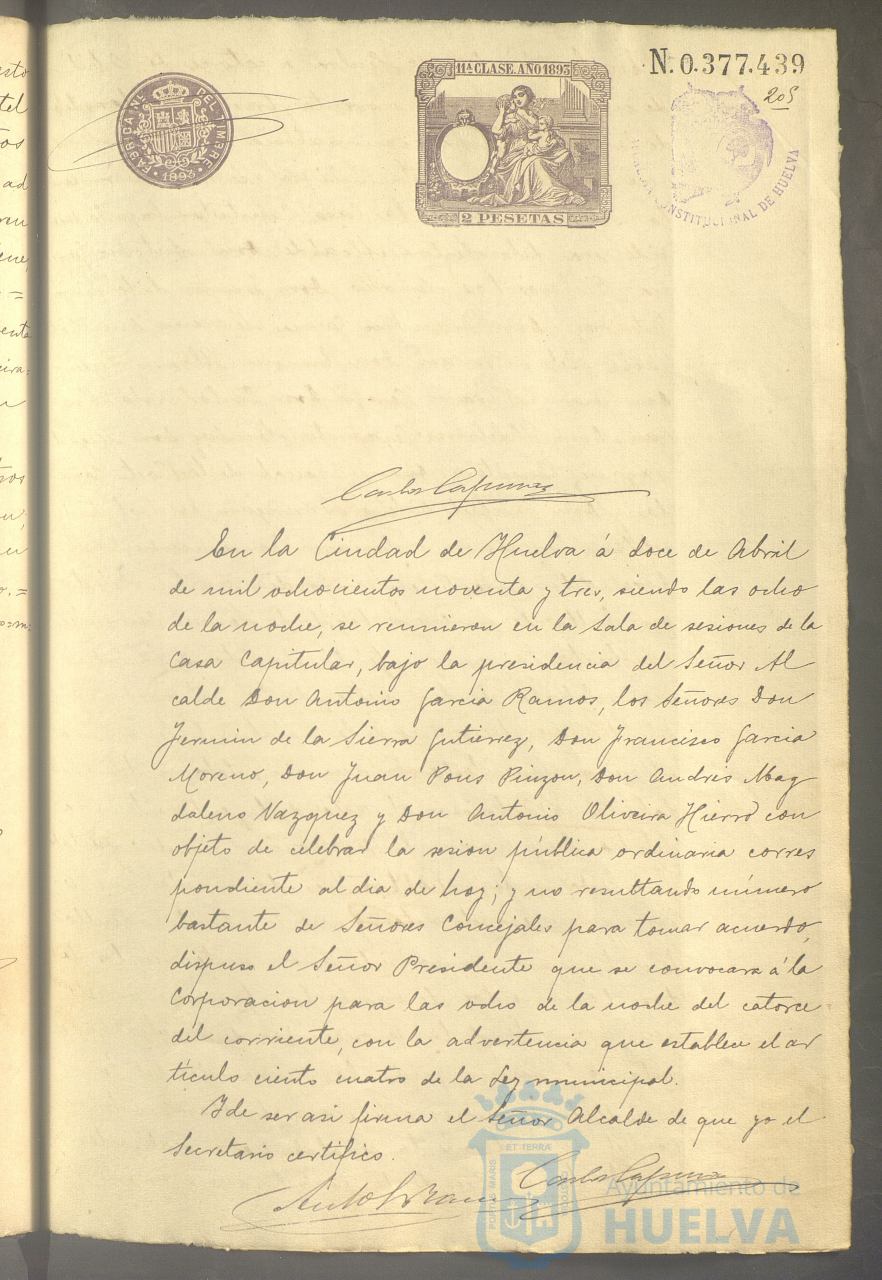 11ª CLASE. AÑO 1893
N. 0.377.439
205
FABRICA Nˡ DEL TIMBRE
1893
2 PESETAS
CONSTITUCIONAL DE HUELVA
En la Ciudad de Huelva á doce de Abril
de mil ochocientos noventa y tres, siendo las ocho
de la noche, se reunieron en la Sala de sesiones de la
Casa Capitular, bajo la presidencia del Señor Al
calde Don Antonio Garcia Ramos, los Señores Don
Fermin de la Sierra Gutierrez, Don Francisco Garcia
Moreno, Don Juan Pons Pinzon, Don Andres Mag
daleno Vazquez y Don Antonio Oliveira Hierro con
objeto de celebrar la sesion pública ordinaria corres
pondiente al dia de hoy; y no resultando número
bastante de Señores Concejales para tomar acuerdo,
dispuso el Señor Presidente que se convocara á la
Corporacion para las ocho de la noche del catorce
del corriente, con la advertencia que establece el ar
tículo ciento cuatro de la Ley municipal.
Y de ser asi firma el Señor Alcalde de que yo el
Secretario certifico.
PORTUS MARIS
ET TERRÆ
CUSTODIA
Ayuntamiento de
HUELVA